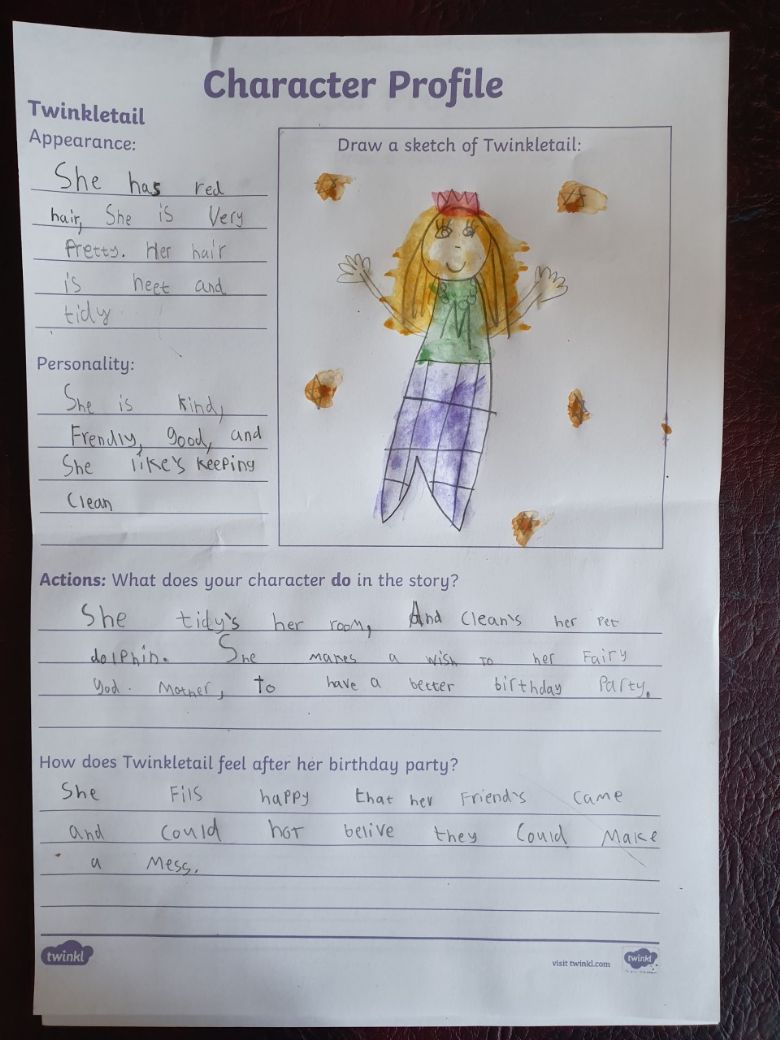 Character Profile
Twinkletail
Appearance:
She has red
hair, She is Very
Pretty. Her hair
is neet and
tidy
Draw a sketch of Twinkletail:
Personality:
She is kind,
Frendly, good, and
She like's keeping
Clean
Actions: What does your character do in the story?
She tidy's her room, And Clean's her Pet
dolphin. She makes a wish to her Fairy
god. Mother, to have a better birthday Party.
How does Twinkletail feel after her birthday party?
She Fils happy that her Friend's came
and Could not belive they Could Make
a Mess.
twinkl
visit twinkl.com
twinkl